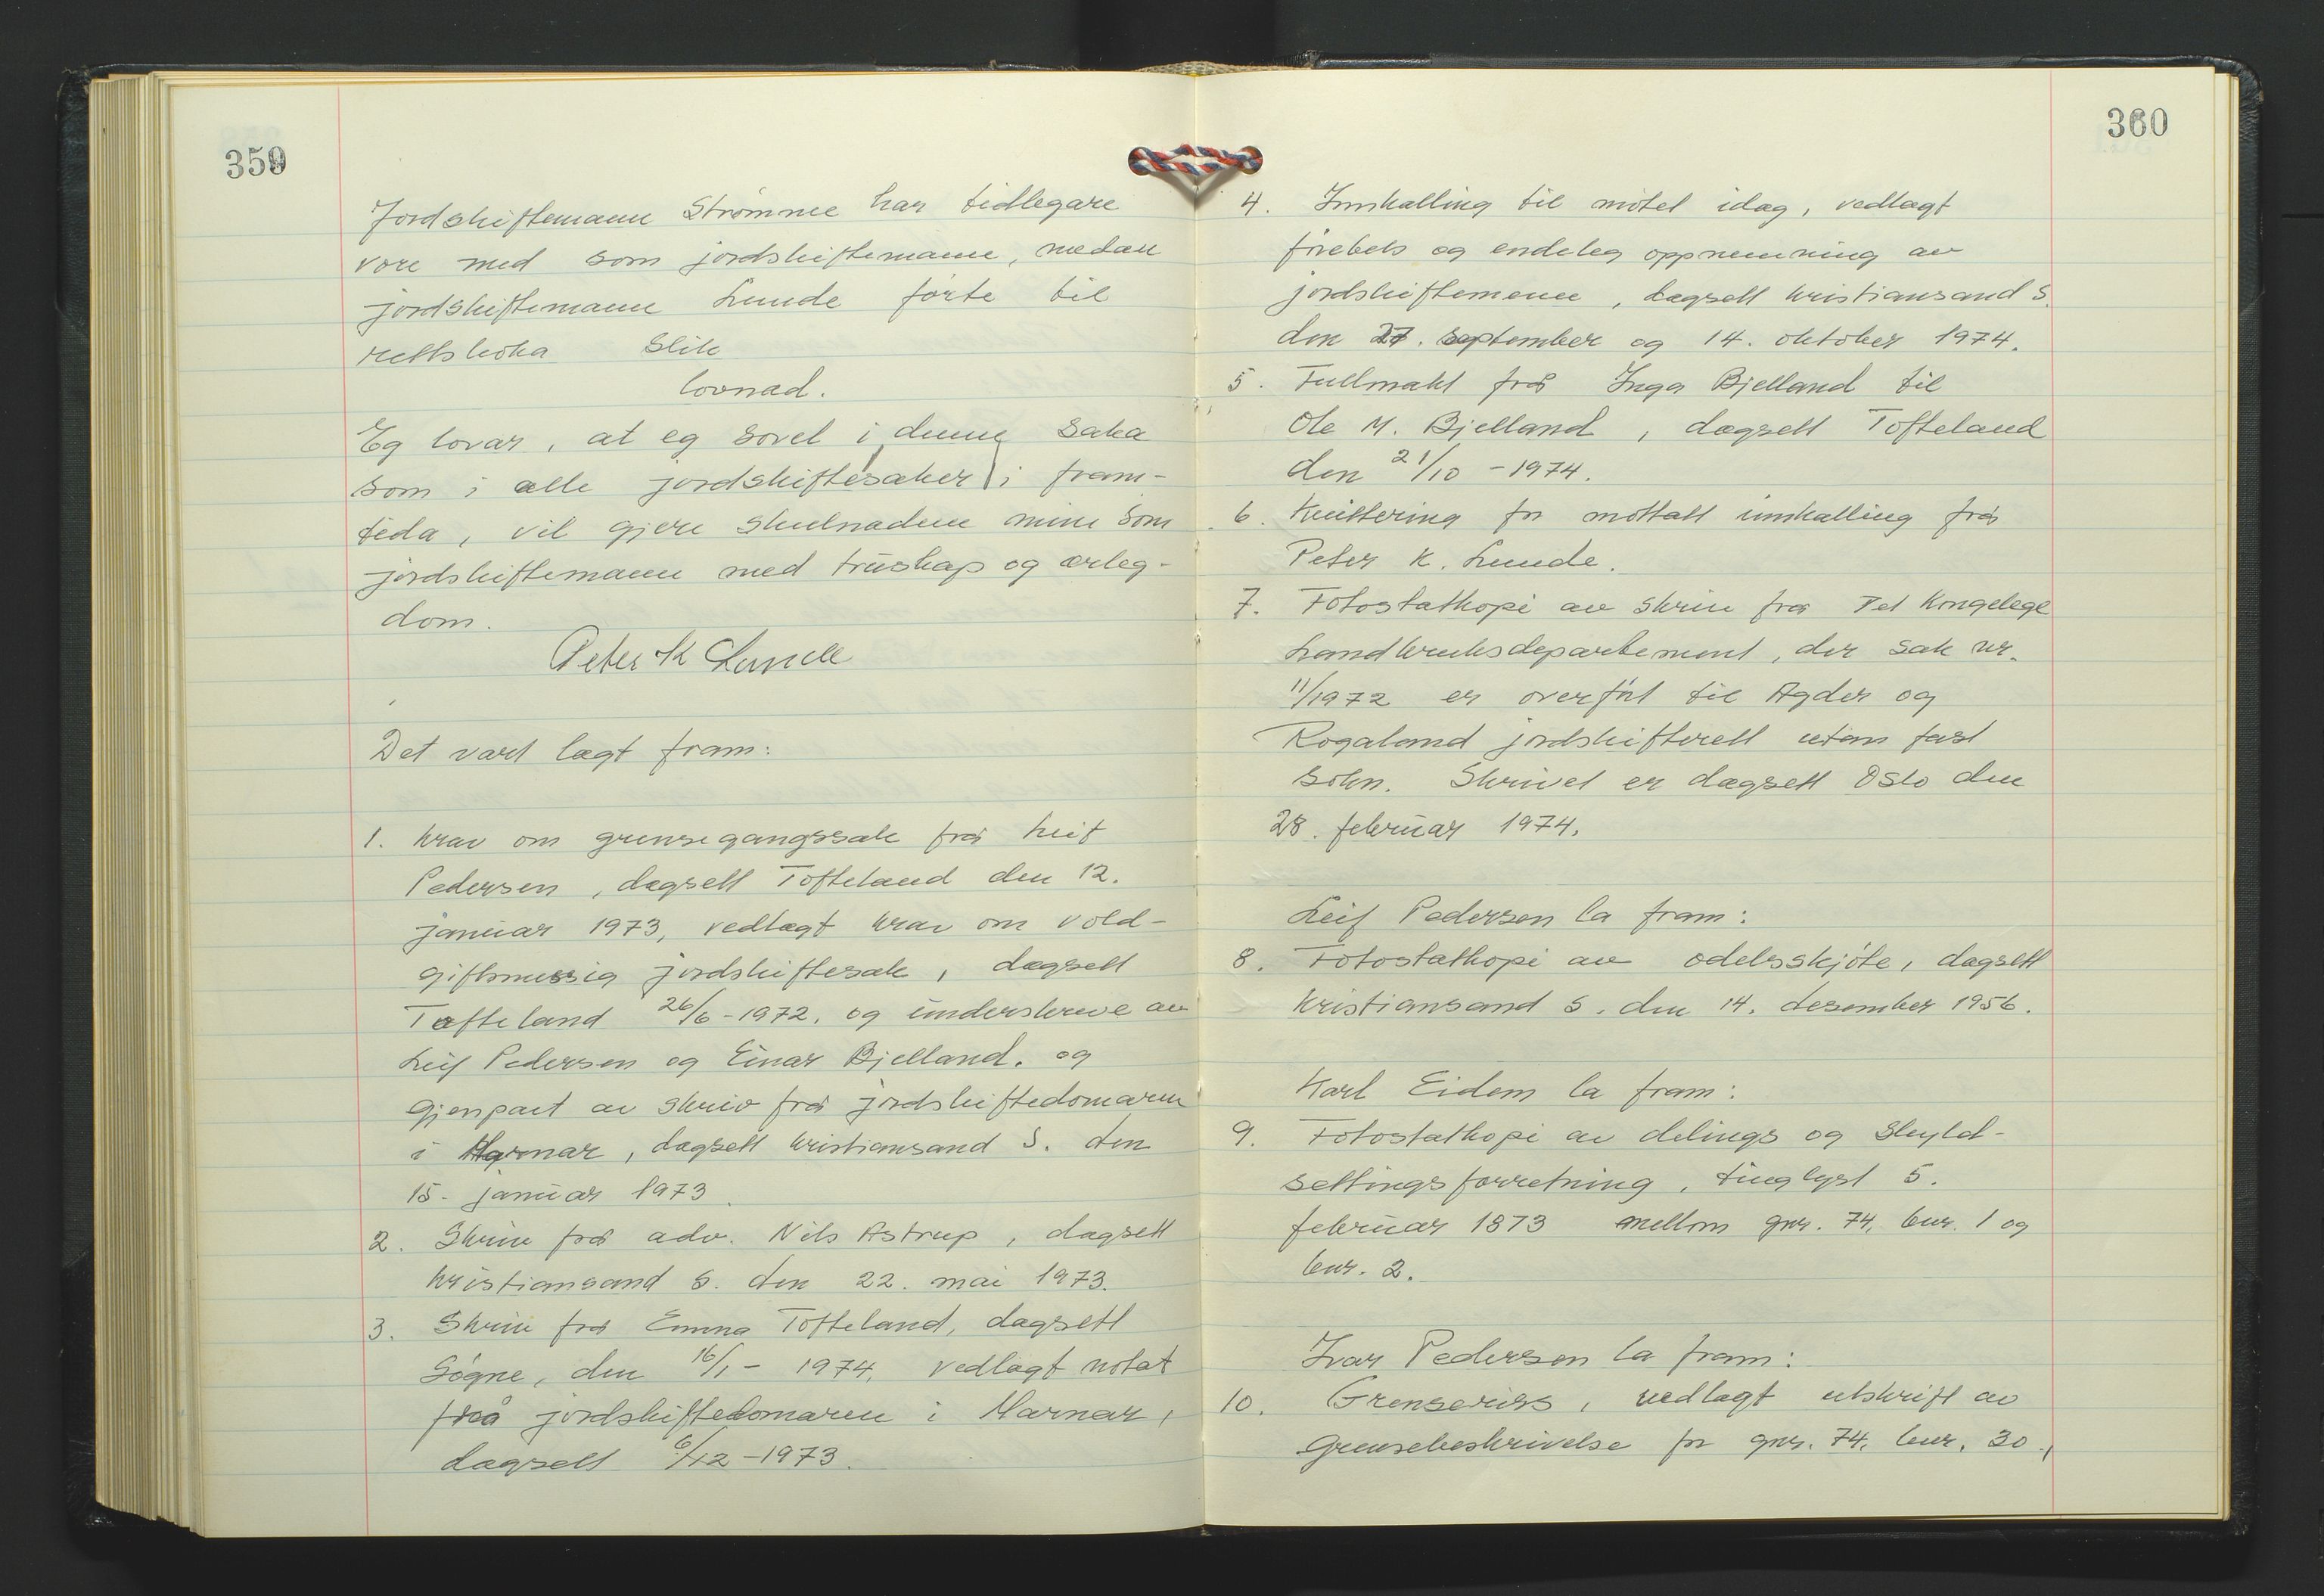 359
Jordskiftemann Strømme har tidlegare
vore med som jordskiftemann, medan
jordskiftemann Lunde førte til
rettsboka slik
lovnad.
Eg lovar, at eg sovel i denne saka
som i alle jordskiftesaker i fram-
tida, vil gjere skulnadene mine som
jordskiftemann med truskap og ærleg-
dom.
Peter K Lunde
Det vart lagt fram:
1. Krav om grensegangssak frå Leif
Pedersen, dagsett Tofteland den 12.
januar 1973, vedlagt krav om vold-
giftsmessig jordskiftesak, dagsett
Tofteland 26/6-1972. og underskreve av
Leif Pedersen og Einar Bjelland. og
Gjenpart av skriv frå jordskiftedomaren
i Marnar, dagsett Kristiansand S. den
15. januar 1973.
2. Skriv frå adv. Nils Astrup, dagsett
Kristiansand S. den 22. mai 1973.
3. Skriv frå Emma Tofteland, dagsett
Søgne, den 16/1- 1974, vedlagt notat
frå jordskiftedomaren i Marnar,
dagsett 6/12-1973.
360
4. Innkalling til møtet idag, vedlagt
førebels og endeleg oppnemning av
jordskiftemenn, dagsett Kristiansand S.
den 27. september og 14. oktober 1974.
5. Fullmakt frå Inga Bjelland til
Ole M. Bjelland, dagsett Tofteland
den 21/10-1974.
6. Kvittering for mottatt innkalling frå
Peter K. Lunde.
7. Fotostatkopi av skriv frå Det Kongelege
Landbruksdepartement, der sak nr.
11/1972 er overført til Agder og
Rogaland jordskifterett utan fast
sokn. Skrivet er dagsett Oslo den
28. februar 1974.
Leif Pedersen la fram:
8. Fotostatkopi av odelsskjøte, dagsett
Kristiansand S. den 14. desember 1956.
Karl Eidem la fram:
9. Fotostatkopi av delings og skyld-
settingsforretning, tinglyst 5.
februar 1873 mellom gnr. 74, bnr. 1 og
bnr. 2.
Ivar Pedersen la fram:
10. Grenseriss, vedlagt utskrift av
Grensebeskrivelse for gnr. 74, bnr. 30.,